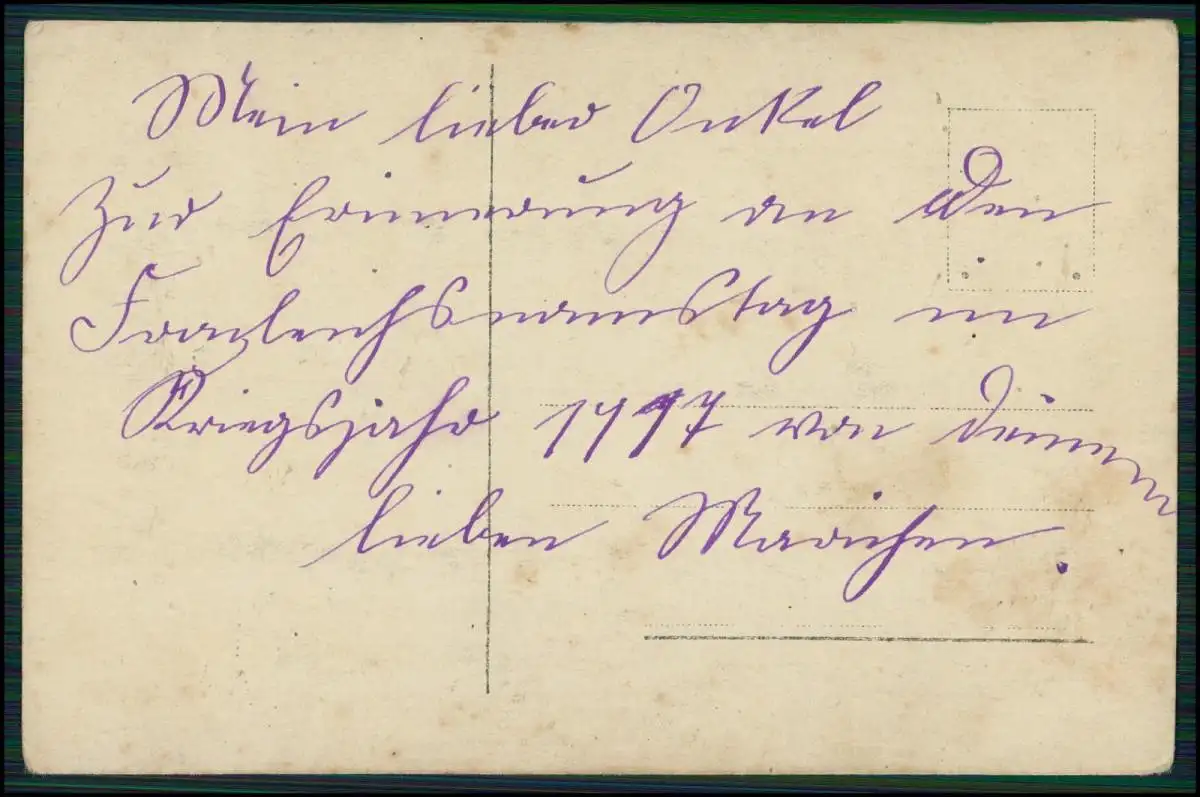 Mein lieber Onkel
Zur Erinnerung an den
Fronleichsnamstag im
Kriegsjahr 1917 von deinem
lieben Marichen.